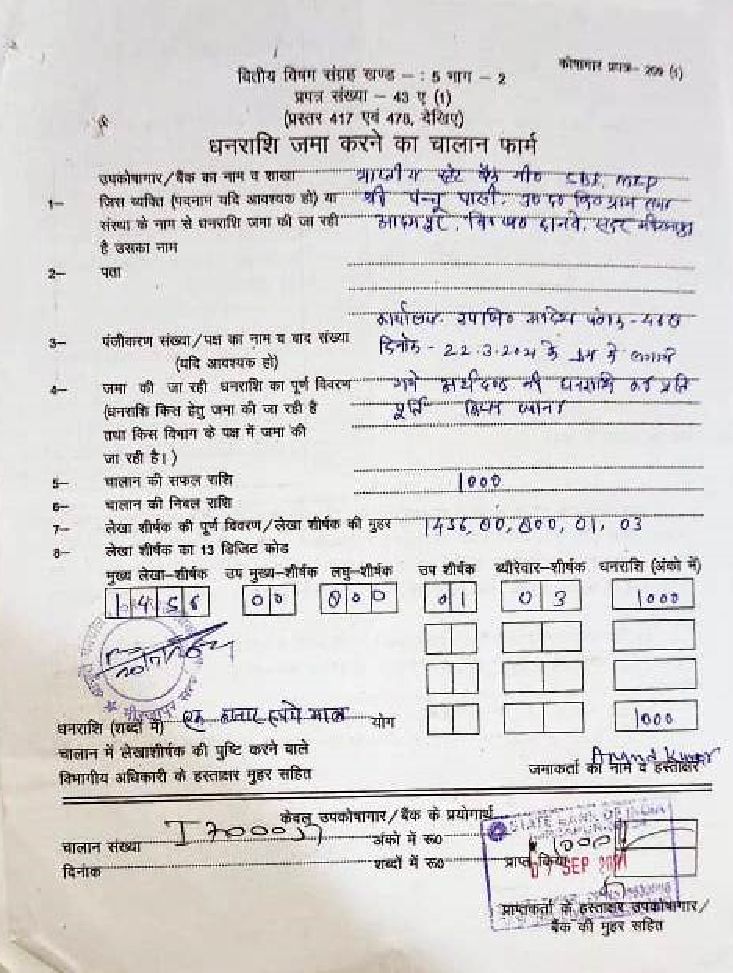 कोषागार प्रपत्र- 209 (1)
वित्तीय विषम संग्रह खण्ड - : 5 भाग - 2
प्रपत्र संख्या - 43 ए (1)
(प्रस्तर 417 एवं 478, देखिए)
धनराशि जमा करने का चालान फार्म
उपकोषागार/बैंक का नाम व शाखा भारतीय स्टेट बैंक SBI, MZP
1- जिस व्यक्ति (पदनाम यदि आवश्यक हो) या श्री पासी
संस्था के नाम से धनराशि जमा की जा रही सदर
है उसका नाम
2- पता
कार्यालय
3- पंजीकरण संख्या/पक्ष का नाम व वाद संख्या दिनांक - 22.3.2021 के
(यदि आवश्यक हो)
4- जमा की जा रही धनराशि का पूर्ण विवरण गये अर्थदण्ड की धनराशि
(धनराशि किस हेतु जमा की जा रही है पूर्ति किया जाना
तथा किस विभाग के पक्ष में जमा की
जा रही है।)
5- चालान की सफल राशि 1000
6- चालान की निबल राशि
7- लेखा शीर्षक की पूर्ण विवरण/लेखा शीर्षक की मुहर 1456, 00, 800, 01, 03
8- लेखा शीर्षक का 13 डिजिट कोड
मुख्य लेखा-शीर्षक उप मुख्य-शीर्षक लघु-शीर्षक उप शीर्षक ब्यौरेवार-शीर्षक धनराशि (अंको में)
1456 00 800 01 03 1000
धनराशि (शब्दों में) एक हजार रूपये मात्र योग 1000
चालान में लेखाशीर्षक की पुष्टि करने वाले Anand Kumar
विभागीय अधिकारी के हस्ताक्षर मुहर सहित जमाकर्ता का नाम व हस्ताक्षर
केवल उपकोषागार/बैंक के प्रयोगार्थ
STATE BANK OF INDIA
चालान संख्या अंको में रू० 1000
दिनांक शब्दों में रू० प्राप्त किया SEP
प्राप्तकर्ता के हस्ताक्षर उपकोषागार/
बैंक की मुहर सहित